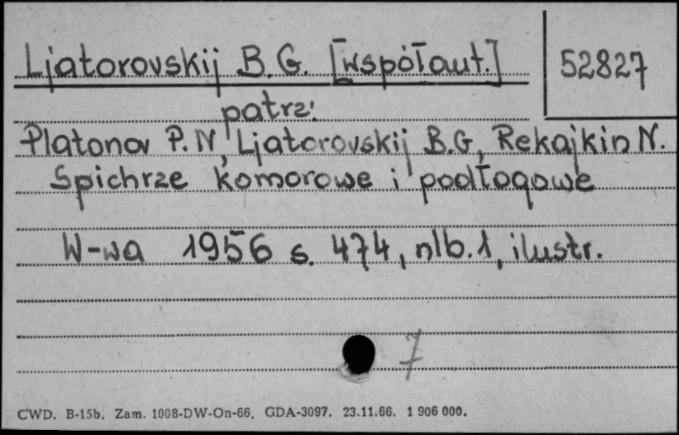 Ljatorovskij B.G. [współaut.]
52827
patrz:
Platonov P.N, Ljatorovskij B.G, Rekajkin N.
Spichrze komorowe i podłogowe
W-wa 1956 s. 474, nlb. 1, ilustr.
7
CWD. B-15b. Zam. 1008-DW-On-66. GDA-3097. 23.11.66. 1 906 000.